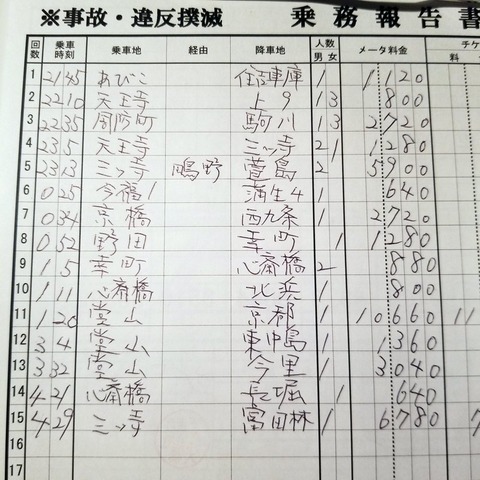 ※事故・違反撲滅 乗務報告書
回数 乗車時刻 乗車地 経由 降車地 人数 男 女 メータ料金 チケ 料
1 21 45 あびこ 住吉車庫 1 1120
2 22 10 天王寺 上9 1 3 800
3 22 35 周防町 駒川 1 3 2720
4 23 5 天王寺 三ッ寺 2 1 1280
5 23 13 三ッ寺 鴫野 萱島 2 5900
6 0 25 今福1 蒲生4 1 640
7 0 34 京橋 西九条 1 2720
8 0 52 野田 幸町 1 1280
9 1 5 幸町 心斎橋 2 880
10 1 11 心斎橋 北浜 1 800
11 1 20 堂山 京都 1 10660 11
12 3 4 堂山 東中島 1 1360
13 3 32 堂山 今里 1 3040
14 4 21 心斎橋 長堀 1 640
15 4 29 三ッ寺 富田林 1 6780
16
17